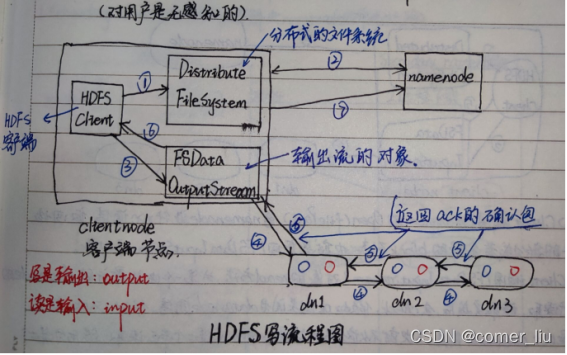 (对用户是无感知的).
分布式的文件系统
① Distribute
FileSystem
②
⑦
namenode
HDFS
Client
HDFS
客户端
⑥
③
FSData
OutputStream
输出流的对象.
clientnode
客户端节点.
④ ⑤
返回ack的确认包
⑤ ⑤
④ ④
写是输出: output
读是输入: input
dn1 dn2 dn3
HDFS写流程图
CSDN @comer_liu